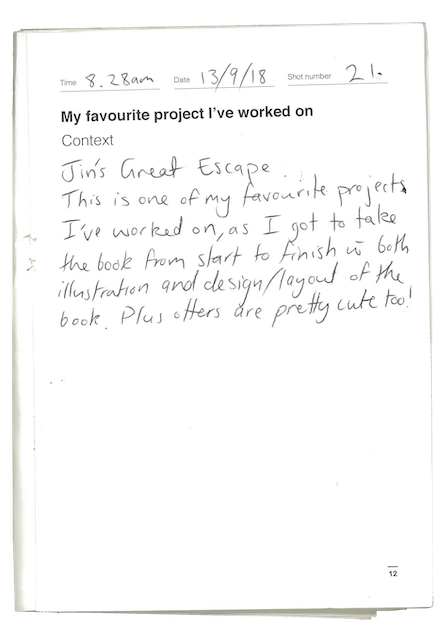 Time 8.28am Date 13/9/18 Shot number 21.
My favourite project I've worked on
Context
Jin's Great Escape.
This is one of my favourite projects
I've worked on, as I got to take
the book from start to finish in both
illustration and design/layout of the
book. Plus otters are pretty cute too!
12